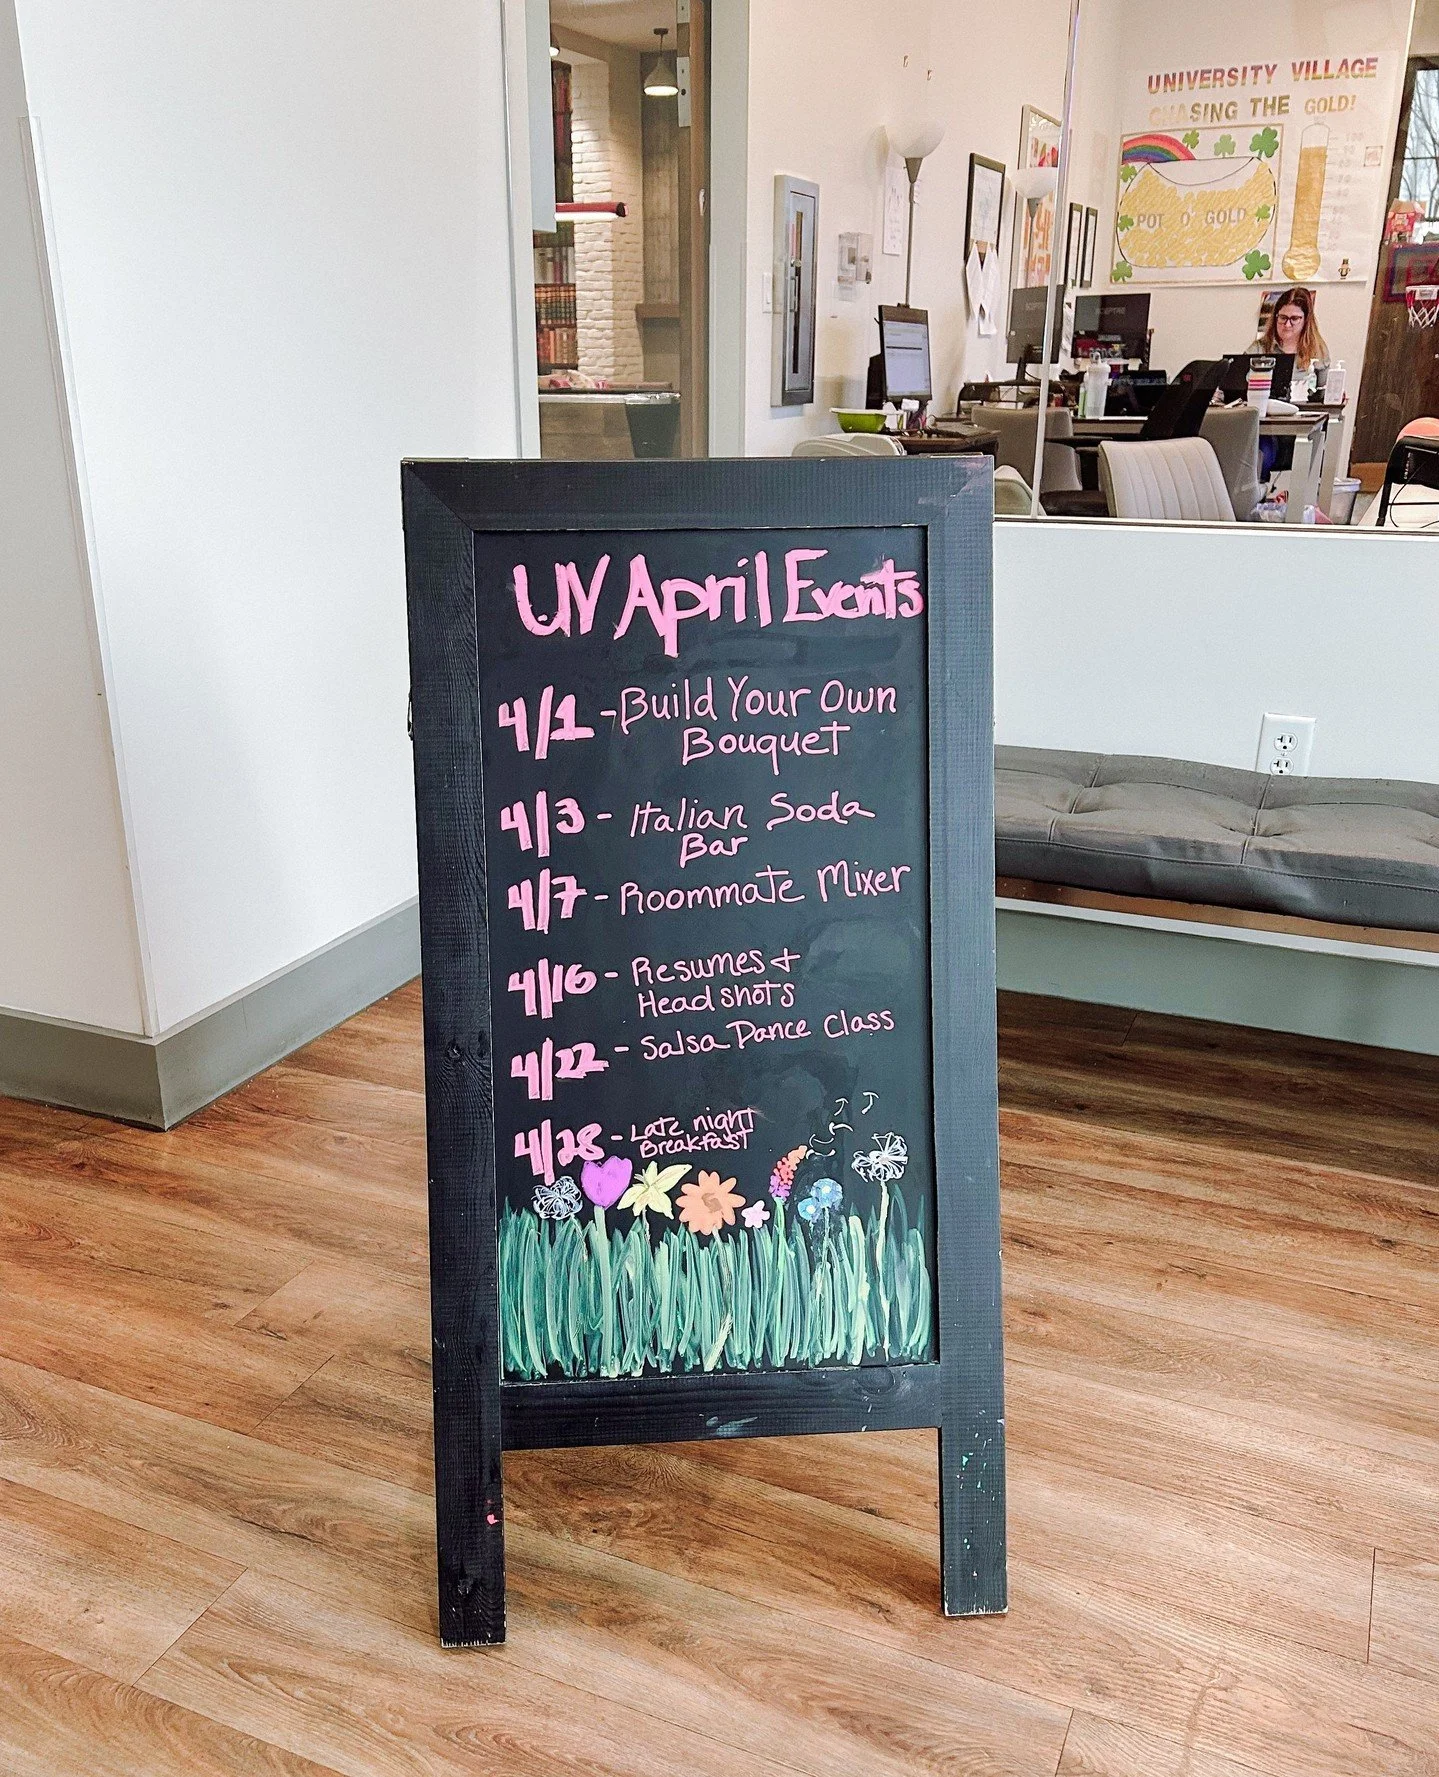 UNIVERSITY VILLAGE
CHASING THE GOLD!
POT O' GOLD
UV April Events
4/1 - Build Your Own
Bouquet
4/3 - Italian Soda
Bar
4/7 - Roommate Mixer
4/16 - Resumes +
Headshots
4/22 - Salsa Dance Class
4/28 - Late night
Breakfast